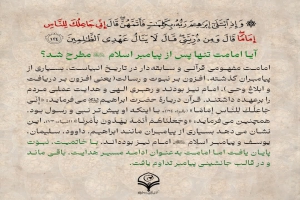 وَإِذِ ابْتَلَىٰ إِبْرَاهِيمَ رَبُّهُ بِكَلِمَاتٍ فَأَتَمَّهُنَّ قَالَ إِنِّي جَاعِلُكَ لِلنَّاسِ
إِمَامًا قَالَ وَمِن ذُرِّيَّتِي قَالَ لَا يَنَالُ عَهْدِي الظَّالِمِينَ ﴿۱۲۴﴾
آیا امامت تنها پس از پیامبر اسلام مطرح شد؟
امامت مفهومی قرآنی و سابقه‌دار در تاریخ انبیاست. بسیاری از
پیامبران گذشته، افزون بر نبوت و رسالت؛ یعنی افزون بر دریافت
و ابلاغ وحی، امام نیز بودند و رهبری الهی و هدایت عملی مردم
را برعهده داشتند. قرآن دربارهٔ حضرت ابراهیم می‌فرماید: «إِنِّی
جَاعِلُكَ لِلنَّاسِ إِمَامًا» با اینکه او پیش‌تر نبی و رسول بود.
همچنین می‌فرماید: «وَجَعَلْنَاهُمْ أَئِمَّةً یَهْدُونَ بِأَمْرِنَا»
نشان می‌دهد بسیاری از پیامبران مانند ابراهیم، داوود، سلیمان،
یوسف و پیامبر اسلام امام نیز بوده‌اند. با خاتمیت، نبوت
پایان یافت اما امامت به‌عنوان ادامه مسیر هدایت، باقی ماند
و در قالب جانشینی پیامبر تداوم یافت.